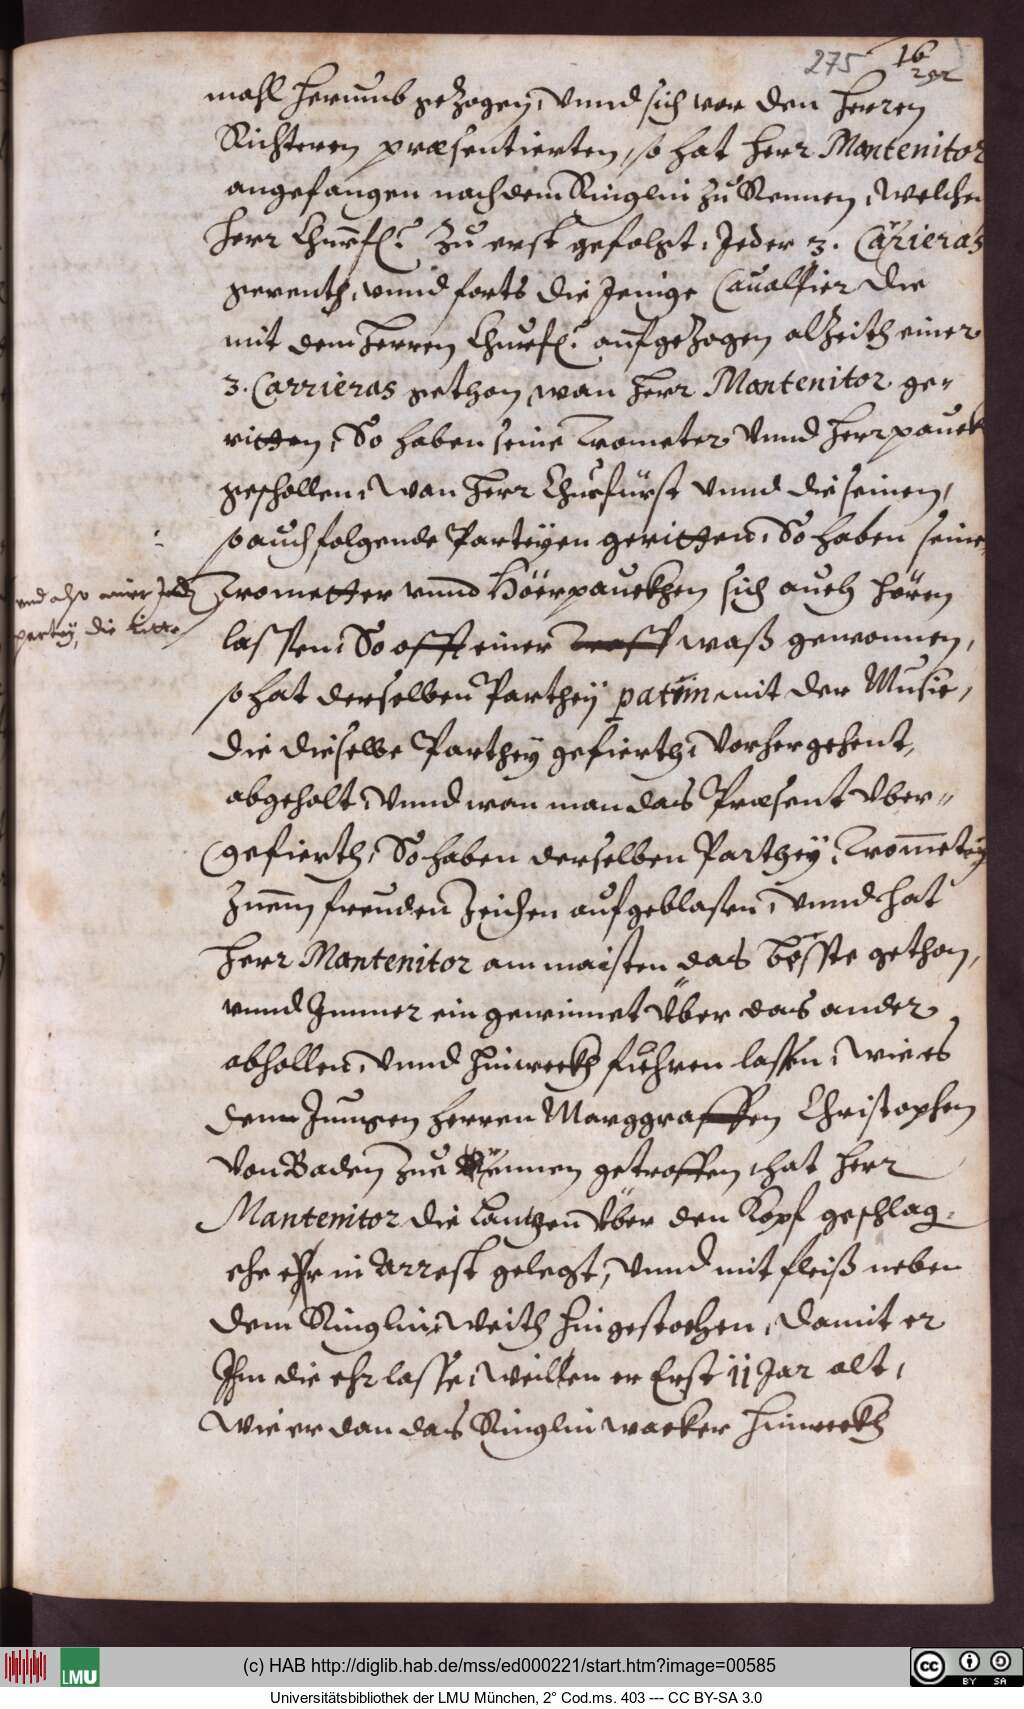 275 16
292
mahl herumb gezogen, vnnd sich vor den Herren
Richteren præsentierten, so hat herr Mantenitor
angefangen nach dem Ringlin zu Rennen, welchem
herr Churfl: zu erst gefolgt, Jeder 3. Carieras
gerenth, vnnd forts die Jenige Caualier die
mit dem Herren Churfl: aufgezogen alzeith einer
3. Carrieras gethon, wan Herr Mantenitor ge-
ritten, So haben seine Trometer vnnd Herrpauck
geschollen, wan Herr Churfürst vnnd die seinen,
so auch folgende Parteyen geritten, So haben seine
Trometter vnnd Hörpaucken sich auch hören
vnd also einer Jeden
partey, die
lassen, So offt einer waß gewonnen,
so hat derselben Parthey patrin mit der Music,
die dieselbe Parthey gefierth, vorhergehent,
abgeholt, vnnd wan man das Præsent vber-
gefierth, So haben derselben Parthey, Trometen
zuem freuden Zeichen aufgeblasen, vnnd hat
Herr Mantenitor am maisten das böste gethon,
vnnd Immer ein gewinnet über das ander
abhollen, vnnd hinweckh fuehren lassen, wie es
dem Jungen herren Marggraffen Christophen
von Baden zue Rennen getroffen, hat herr
Mantenitor die Lantzen über den Kopf geschlag:
ehe er in Arrest gelegt, vnnd mit fleiß neben
dem Ringlin weith hingestochen, damit er
Ihm die ehr lasse, weillen er Erst 11 Jar alt,
wie er dan das Ringlin wacker hinweckh
(c) HAB http://diglib.hab.de/mss/ed000221/start.htm?image=00585
LMU
CC BY SA
Universitätsbibliothek der LMU München, 2° Cod.ms. 403 --- CC BY-SA 3.0